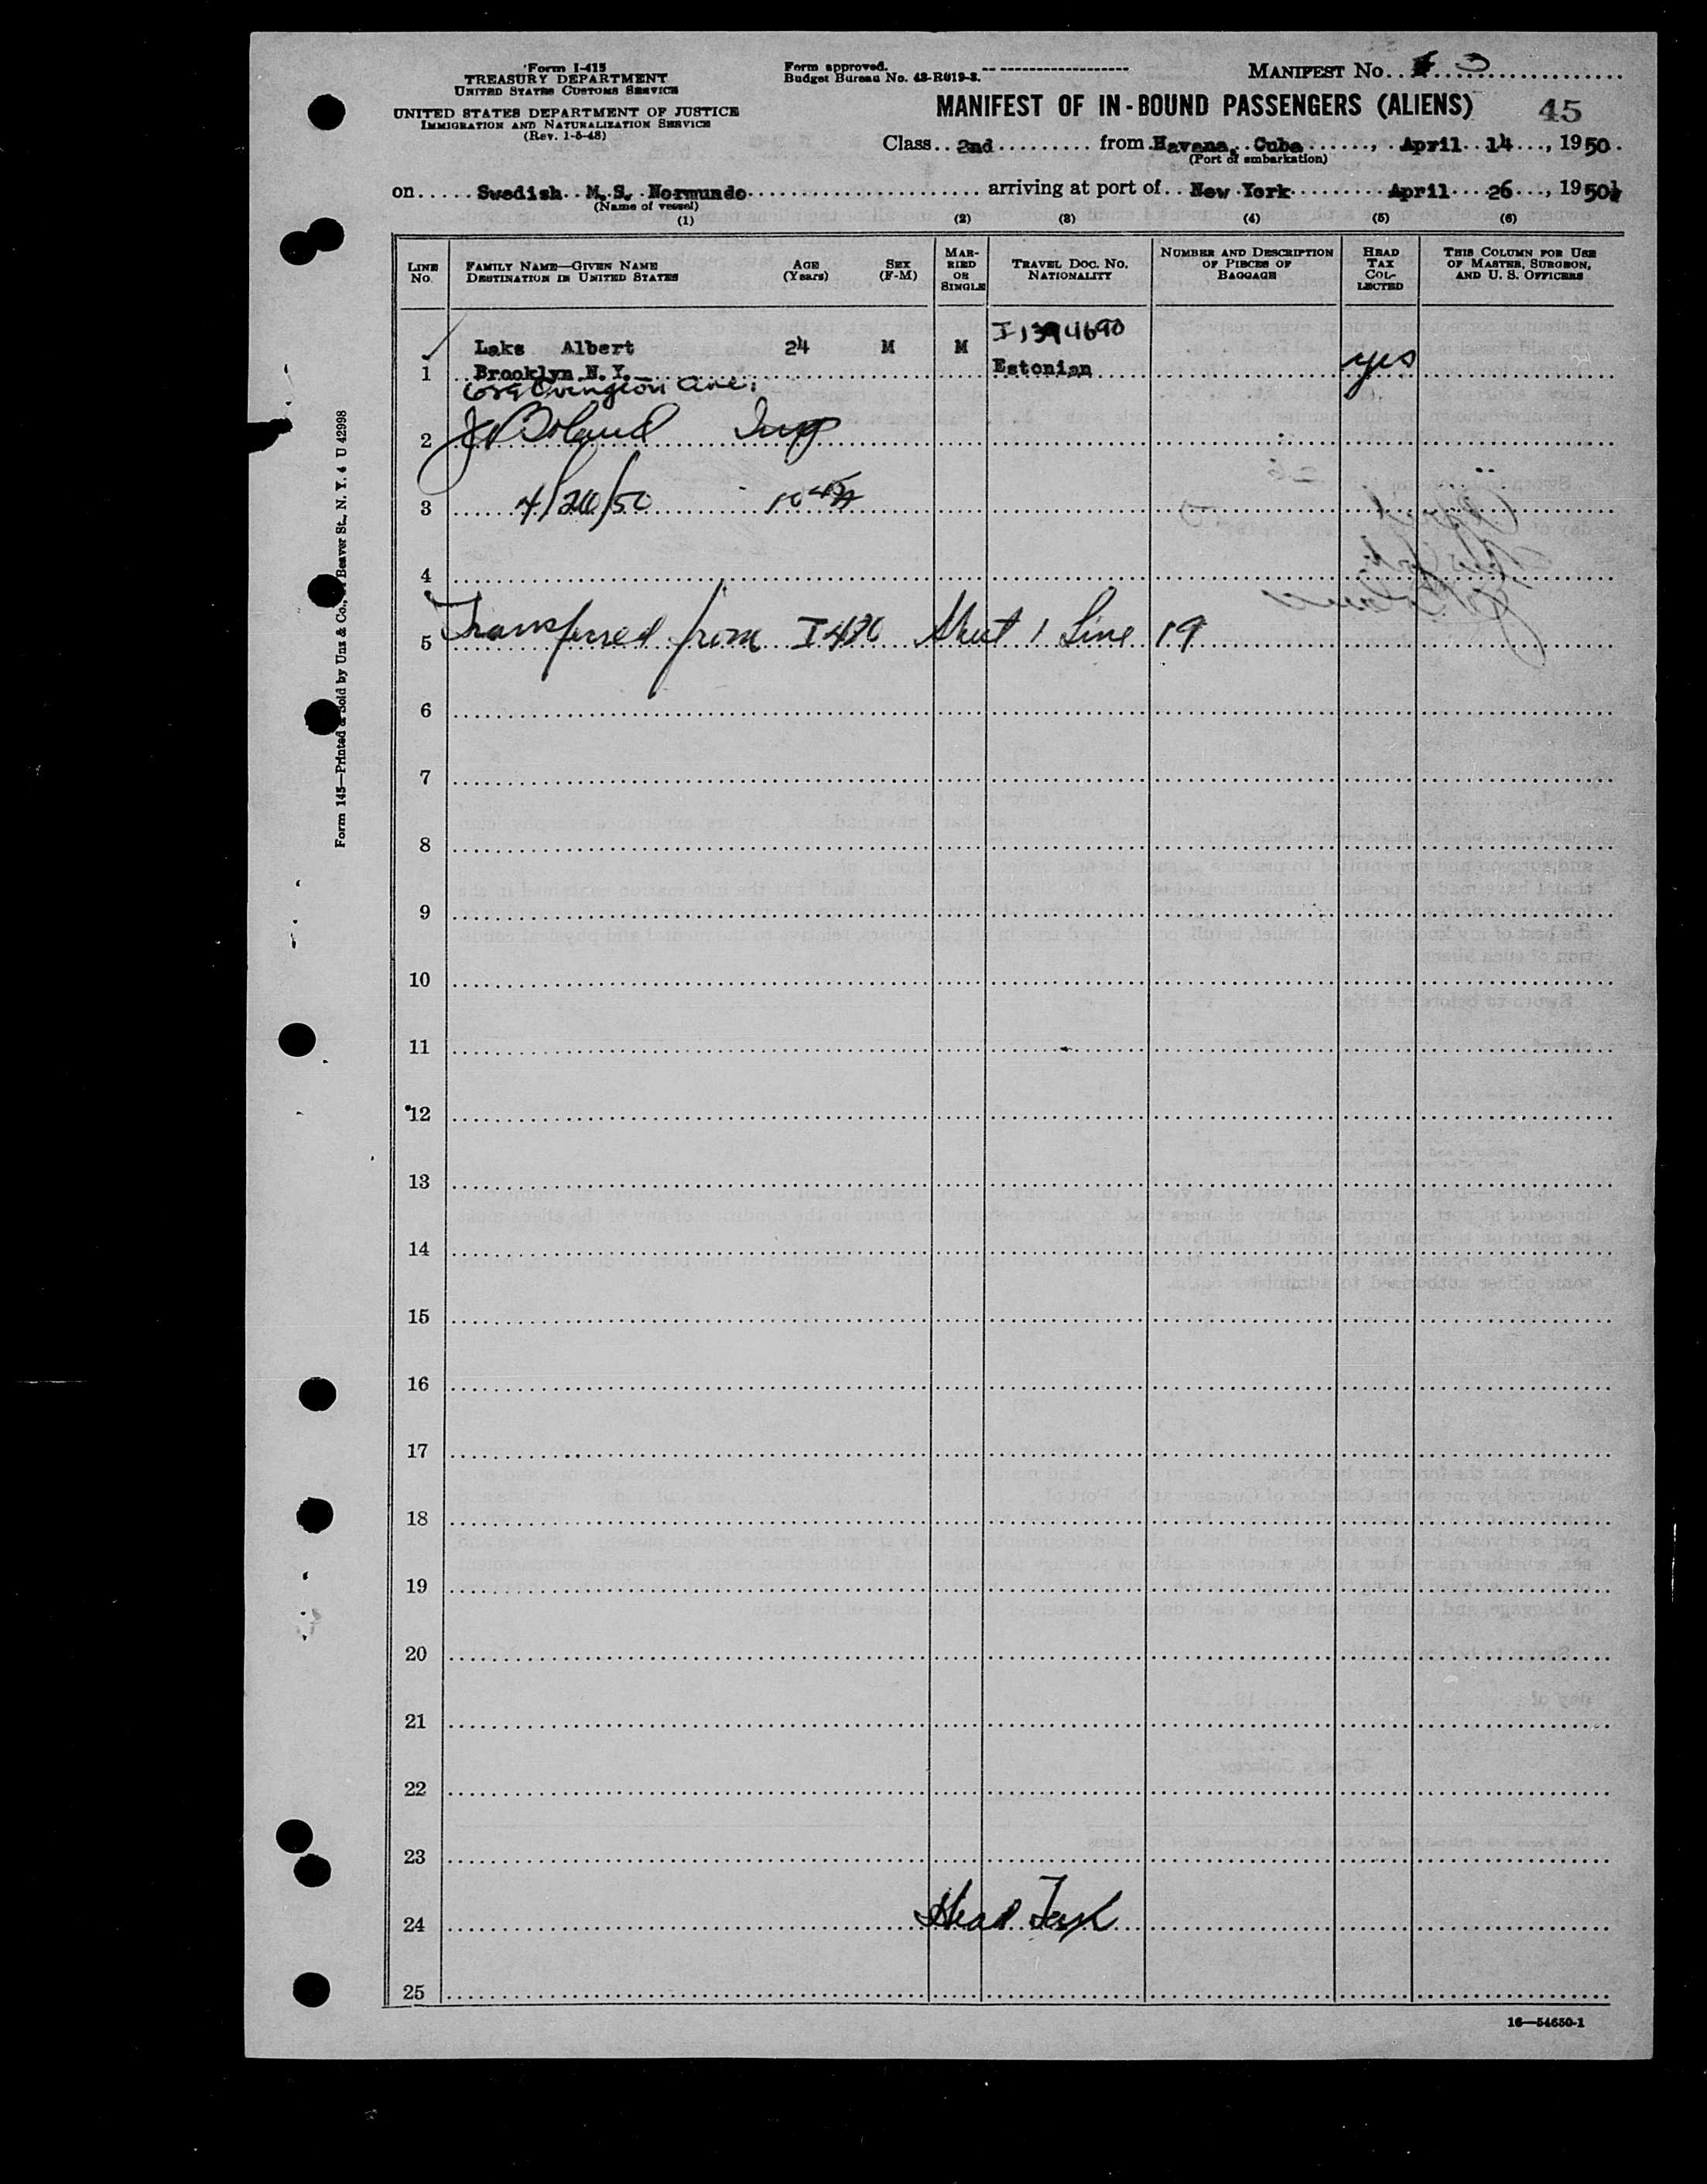 Form I-415
TREASURY DEPARTMENT
UNITED STATES CUSTOMS SERVICE
UNITED STATES DEPARTMENT OF JUSTICE
IMMIGRATION AND NATURALIZATION SERVICE
(Rev. 1-5-48)
Form approved.
Budget Bureau No. 43-R019-3.
MANIFEST No. 3
MANIFEST OF IN-BOUND PASSENGERS (ALIENS) 45
Class 2nd from Havana, Cuba, April 14, 1950.
(Port of embarkation)
on Swedish M.S. Normundo arriving at port of New York April 26, 1950
(Name of vessel)
(1) (2) (3) (4) (5) (6)
LINE No. FAMILY NAME—GIVEN NAME DESTINATION IN UNITED STATES AGE (Years) SEX (F-M) MARRIED OR SINGLE TRAVEL DOC. NO. NATIONALITY NUMBER AND DESCRIPTION OF PIECES OF BAGGAGE HEAD TAX COLLECTED THIS COLUMN FOR USE OF MASTER, SURGEON, AND U. S. OFFICERS
I 1394690
Laks Albert 24 M M
1 Brooklyn N.Y. Estonian yes
Ave.
2 Boland Insp
3 4/26/50 10
4
5 Transferred from I 480 Sheet 1 Line 19
6
7
8
9
10
11
12
13
14
15
16
17
18
19
20
21
22
23
24 Head Tax
25
16—54650-1
Form 145—Printed & Sold by Unz & Co., Beaver St., N. Y. 4 U 42998